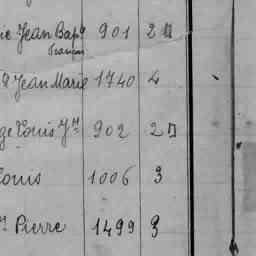 Jean Bapt 901 2
François
Jean Marie 1740 4
Louis Jn 902 2
Louis 1006 3
Pierre 1499 3